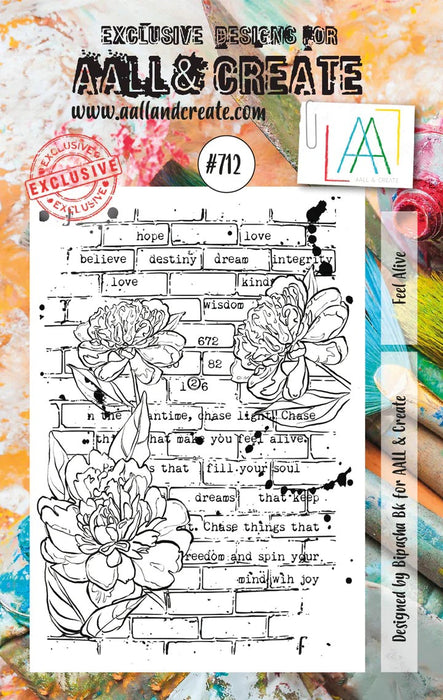 EXCLUSIVE DESIGNS FOR
AALL & CREATE
www.aallandcreate.com
#712
AA
AALL & CREATE
EXCLUSIVE
EXCLUSIVE
EXCLUSIVE
Feel Alive
Designed by Bipasha Bk for AALL & Create
hope love
believe destiny dream integrity
love kind
wisdom
672
82
26
n the antime, chase light! Chase
thi hat make you feel alive.
s that fill your soul
dreams that keep
t. Chase things that
reedom and spin your
mind wih joy
f